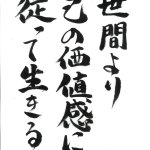 世間より
己の価値感に
従って生きる